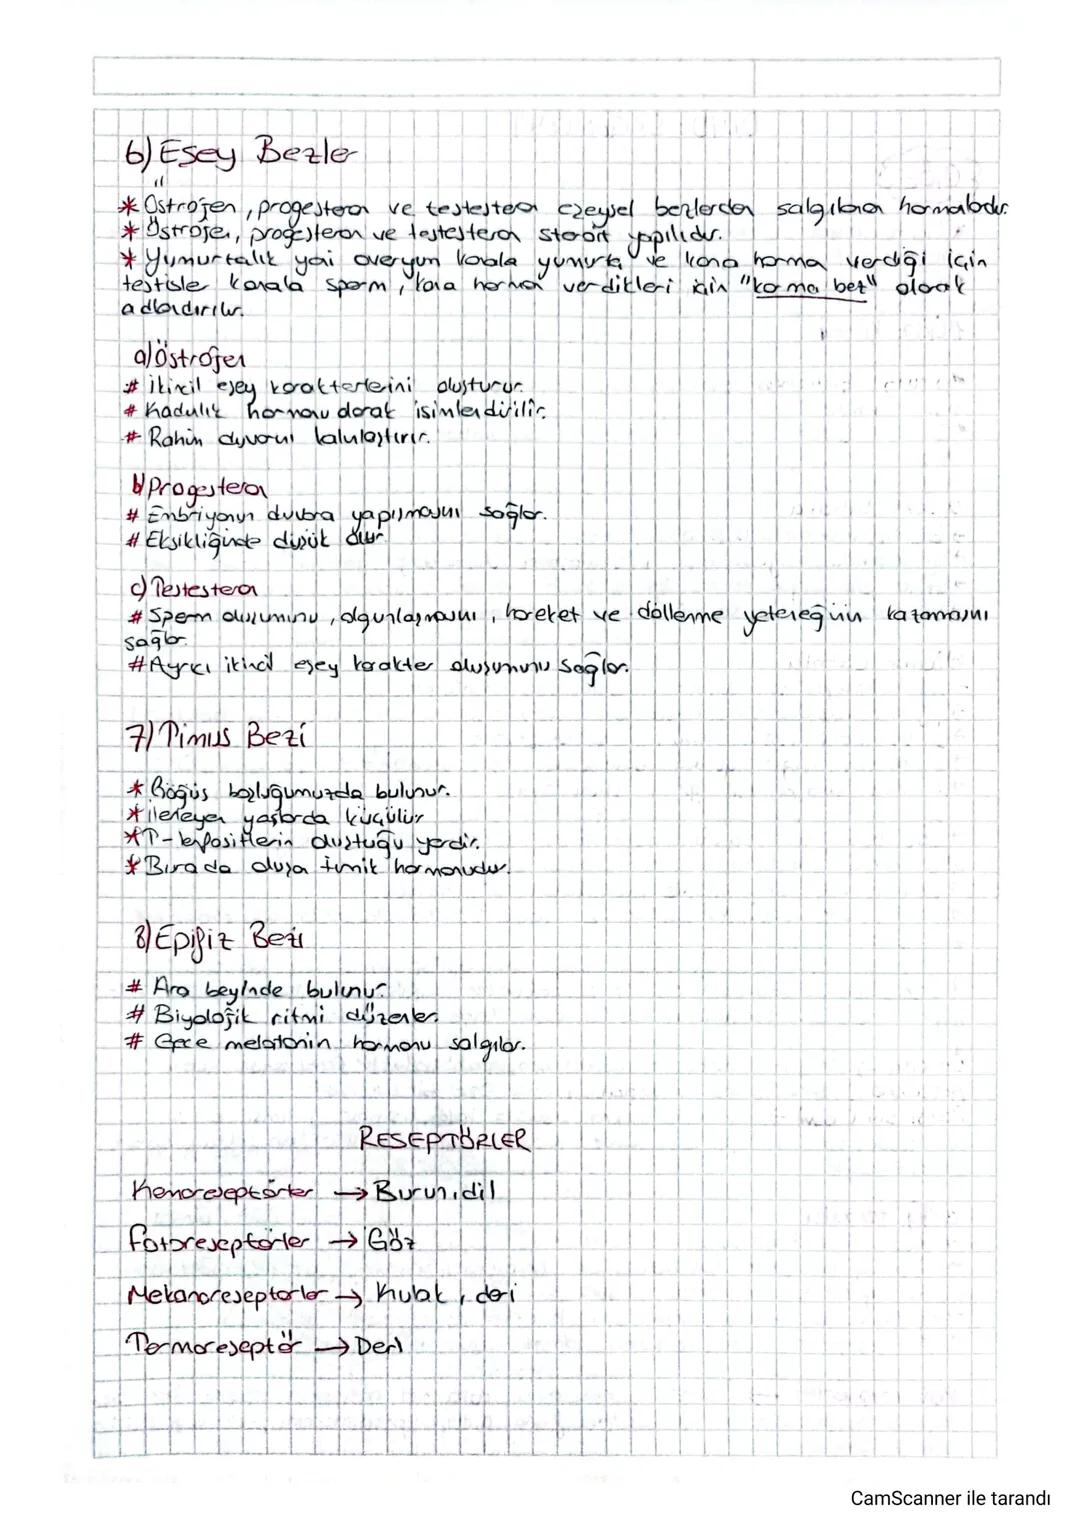 6) Eşey Bezler
* Östrojen, progesteron ve testesteron eşeysel bezlerden salgılanan hormonlardır.
* Östrojen, progesteron ve testesteron steroit yapılıdır.
* Yumurtalık yani overyum kanala yumurta ve kana hormon verdiği için
testisler kanala sperm, kana hormon verdikleri için "karma bez" olarak
adlandırılır.
a) Östrojen
# İkincil eşey karakterlerini oluşturur.
# Kadınlık hormonu olarak isimlendirilir.
# Rahim duvarını kalınlaştırır.
b) Progesteron
# Embriyonun duvara yapışmasını sağlar.
# Eksikliğinde düşük olur
c) Testesteron
# Sperm oluşumunu, olgunlaşmasını, hareket ve döllenme yeteneğinin kazanmasını
sağlar.
# Ayrıca ikincil eşey karakter oluşumunu sağlar.
7) Timus Bezi
* Göğüs boşluğumuzda bulunur.
* İlerleyen yaşlarda küçülür
* T-lenfositlerin oluştuğu yerdir.
* Burada oluşan timik hormonudur.
8) Epifiz Bezi
# Ara beyinde bulunur.
# Biyolojik ritmi düzenler.
# Gece melatonin hormonu salgılar.
RESEPTÖRLER
Kemoreseptörler → Burun, dil
Fotoreseptörler → Göz
Mekanoreseptorler → Kulak, deri
Termoreseptör → Deri
CamScanner ile tarandı